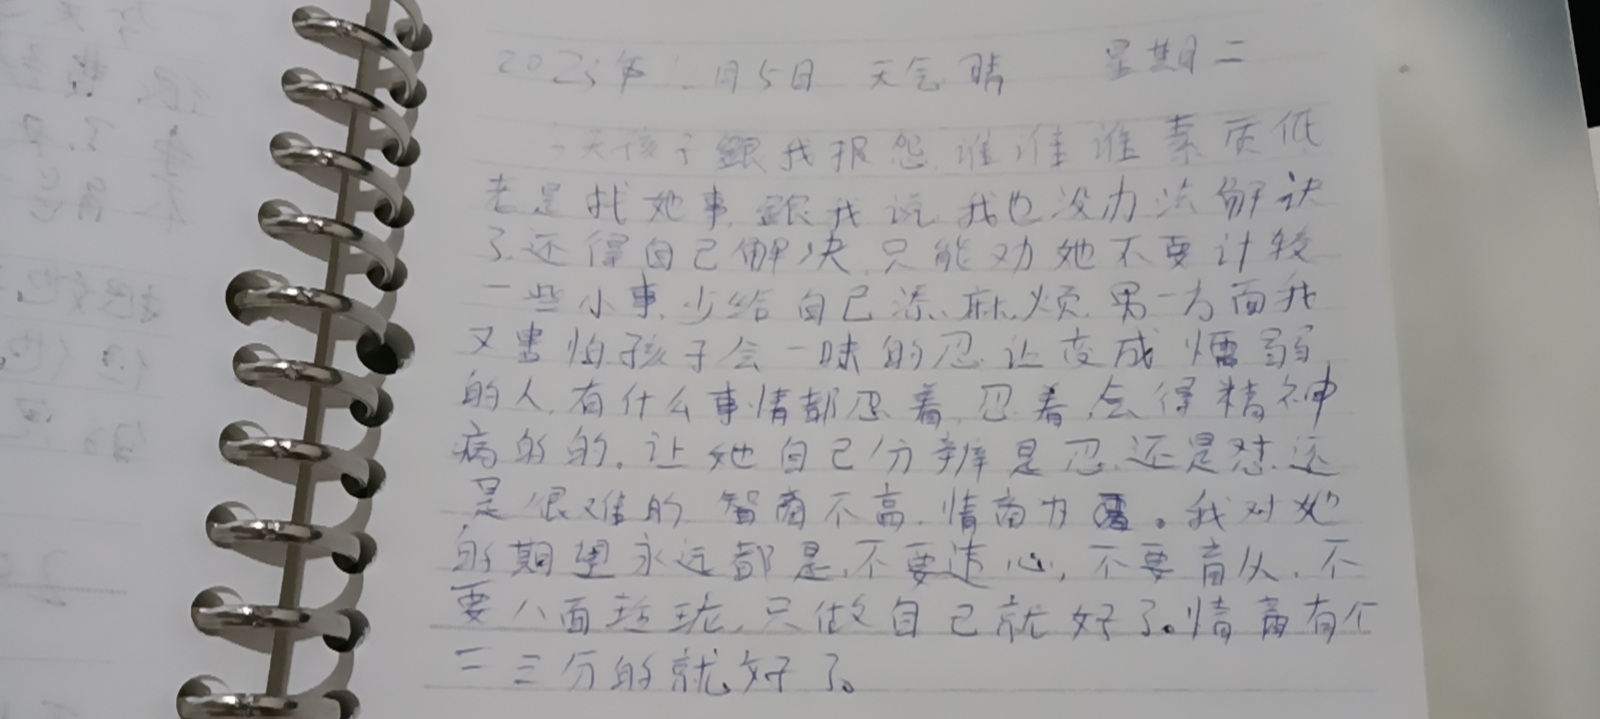 2023年 月5日 天气晴 星期二
天孩子跟我报怨 谁谁谁素质低
老是找她事 跟我说 我也没办法解诀
了还得自己解决 只能劝她不要计较
一些小事 少给自己添麻烦 另一方面我
又害怕孩子会一味的忍让变成懦弱
的人 有什么事情都忍着 忍着会得精神
病的 的 让她自己分辨是忍 还是怼 还
是很难的 智商不高 情商为 。我对她
的期望永远都是 不要违心 不要盲从 不
要八面玲珑 只做自己就好了。情商有个
二三分的就好了。